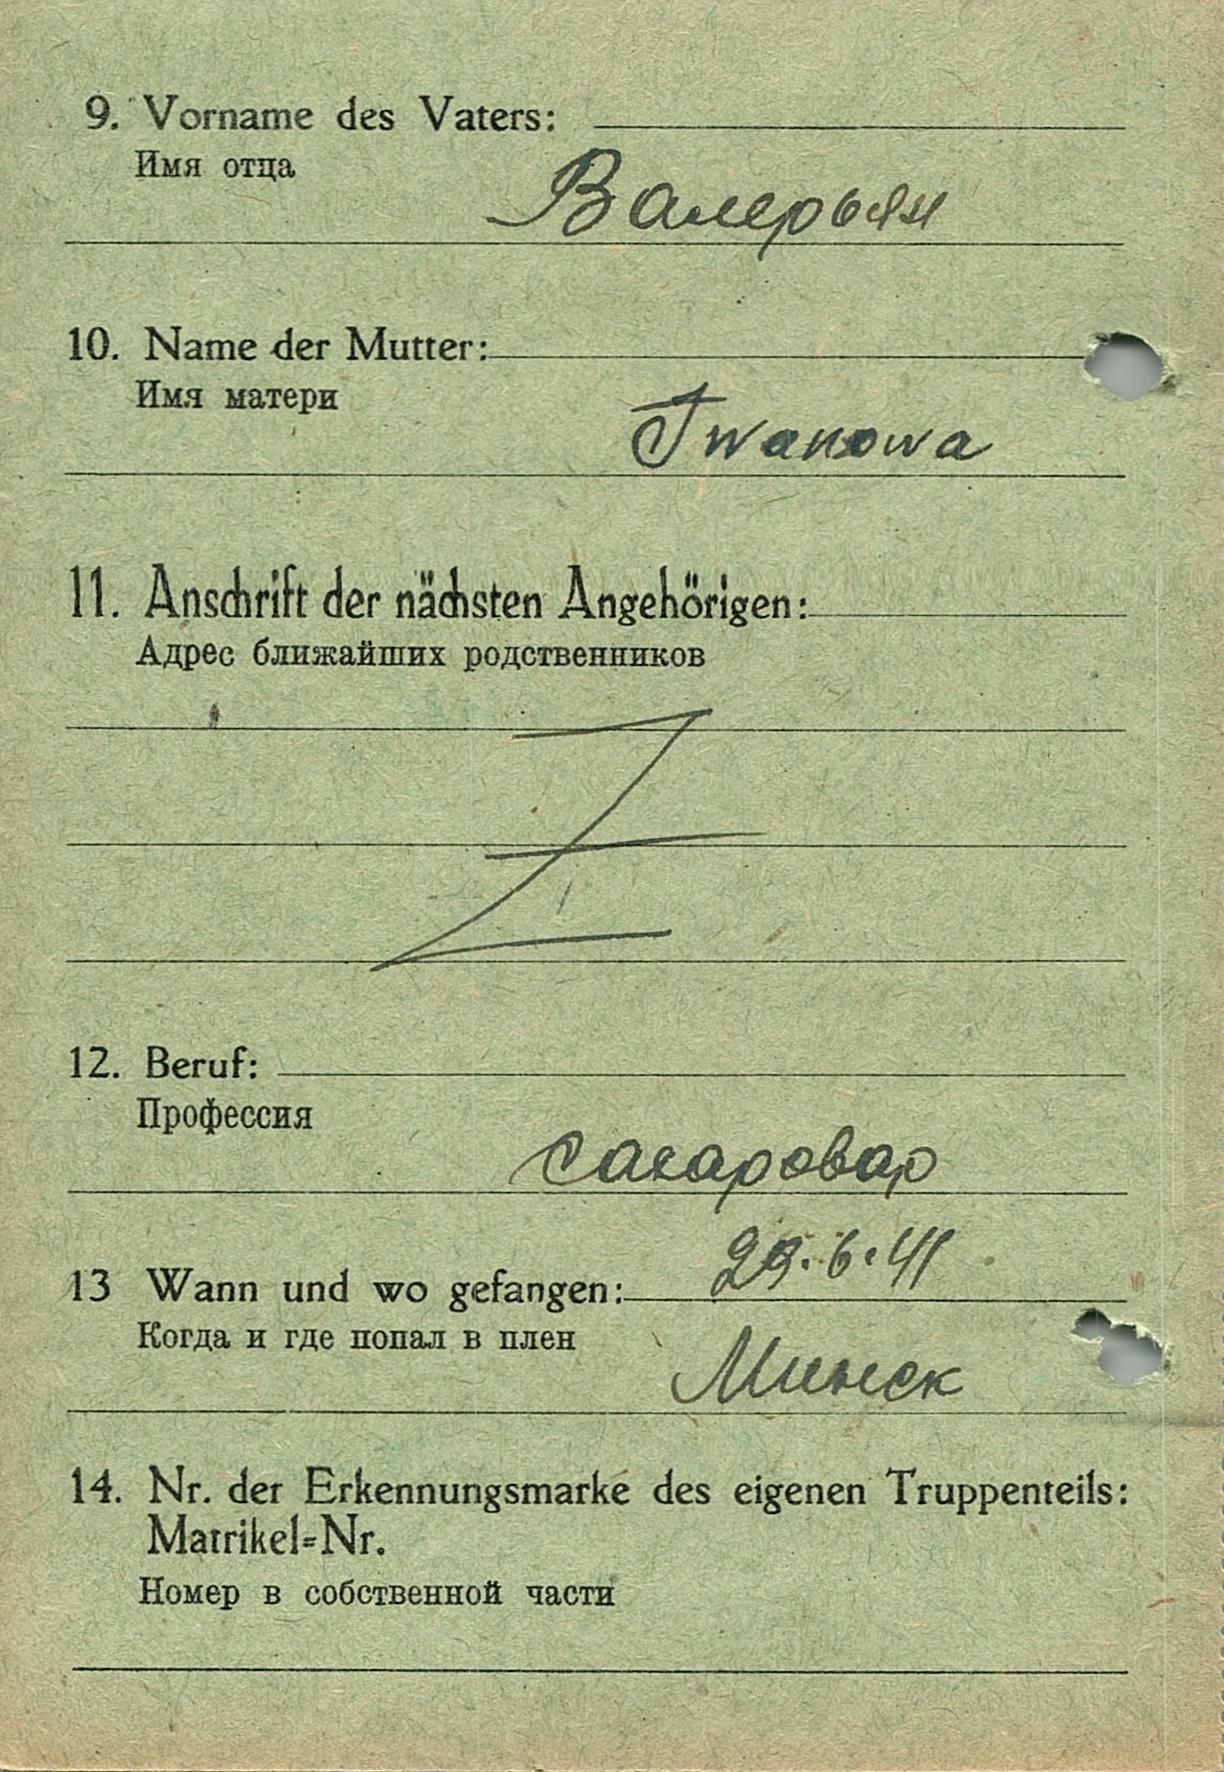 9. Vorname des Vaters:
Имя отца
Валерьян
10. Name der Mutter:
Имя матери
Iwanowa
11. Anschrift der nächsten Angehörigen:
Адрес ближайших родственников
12. Beruf:
Профессия
сахаровар
29.6.41
13 Wann und wo gefangen:
Когда и где попал в плен
Минск
14. Nr. der Erkennungsmarke des eigenen Truppenteils:
Matrikel=Nr.
Номер в собственной части